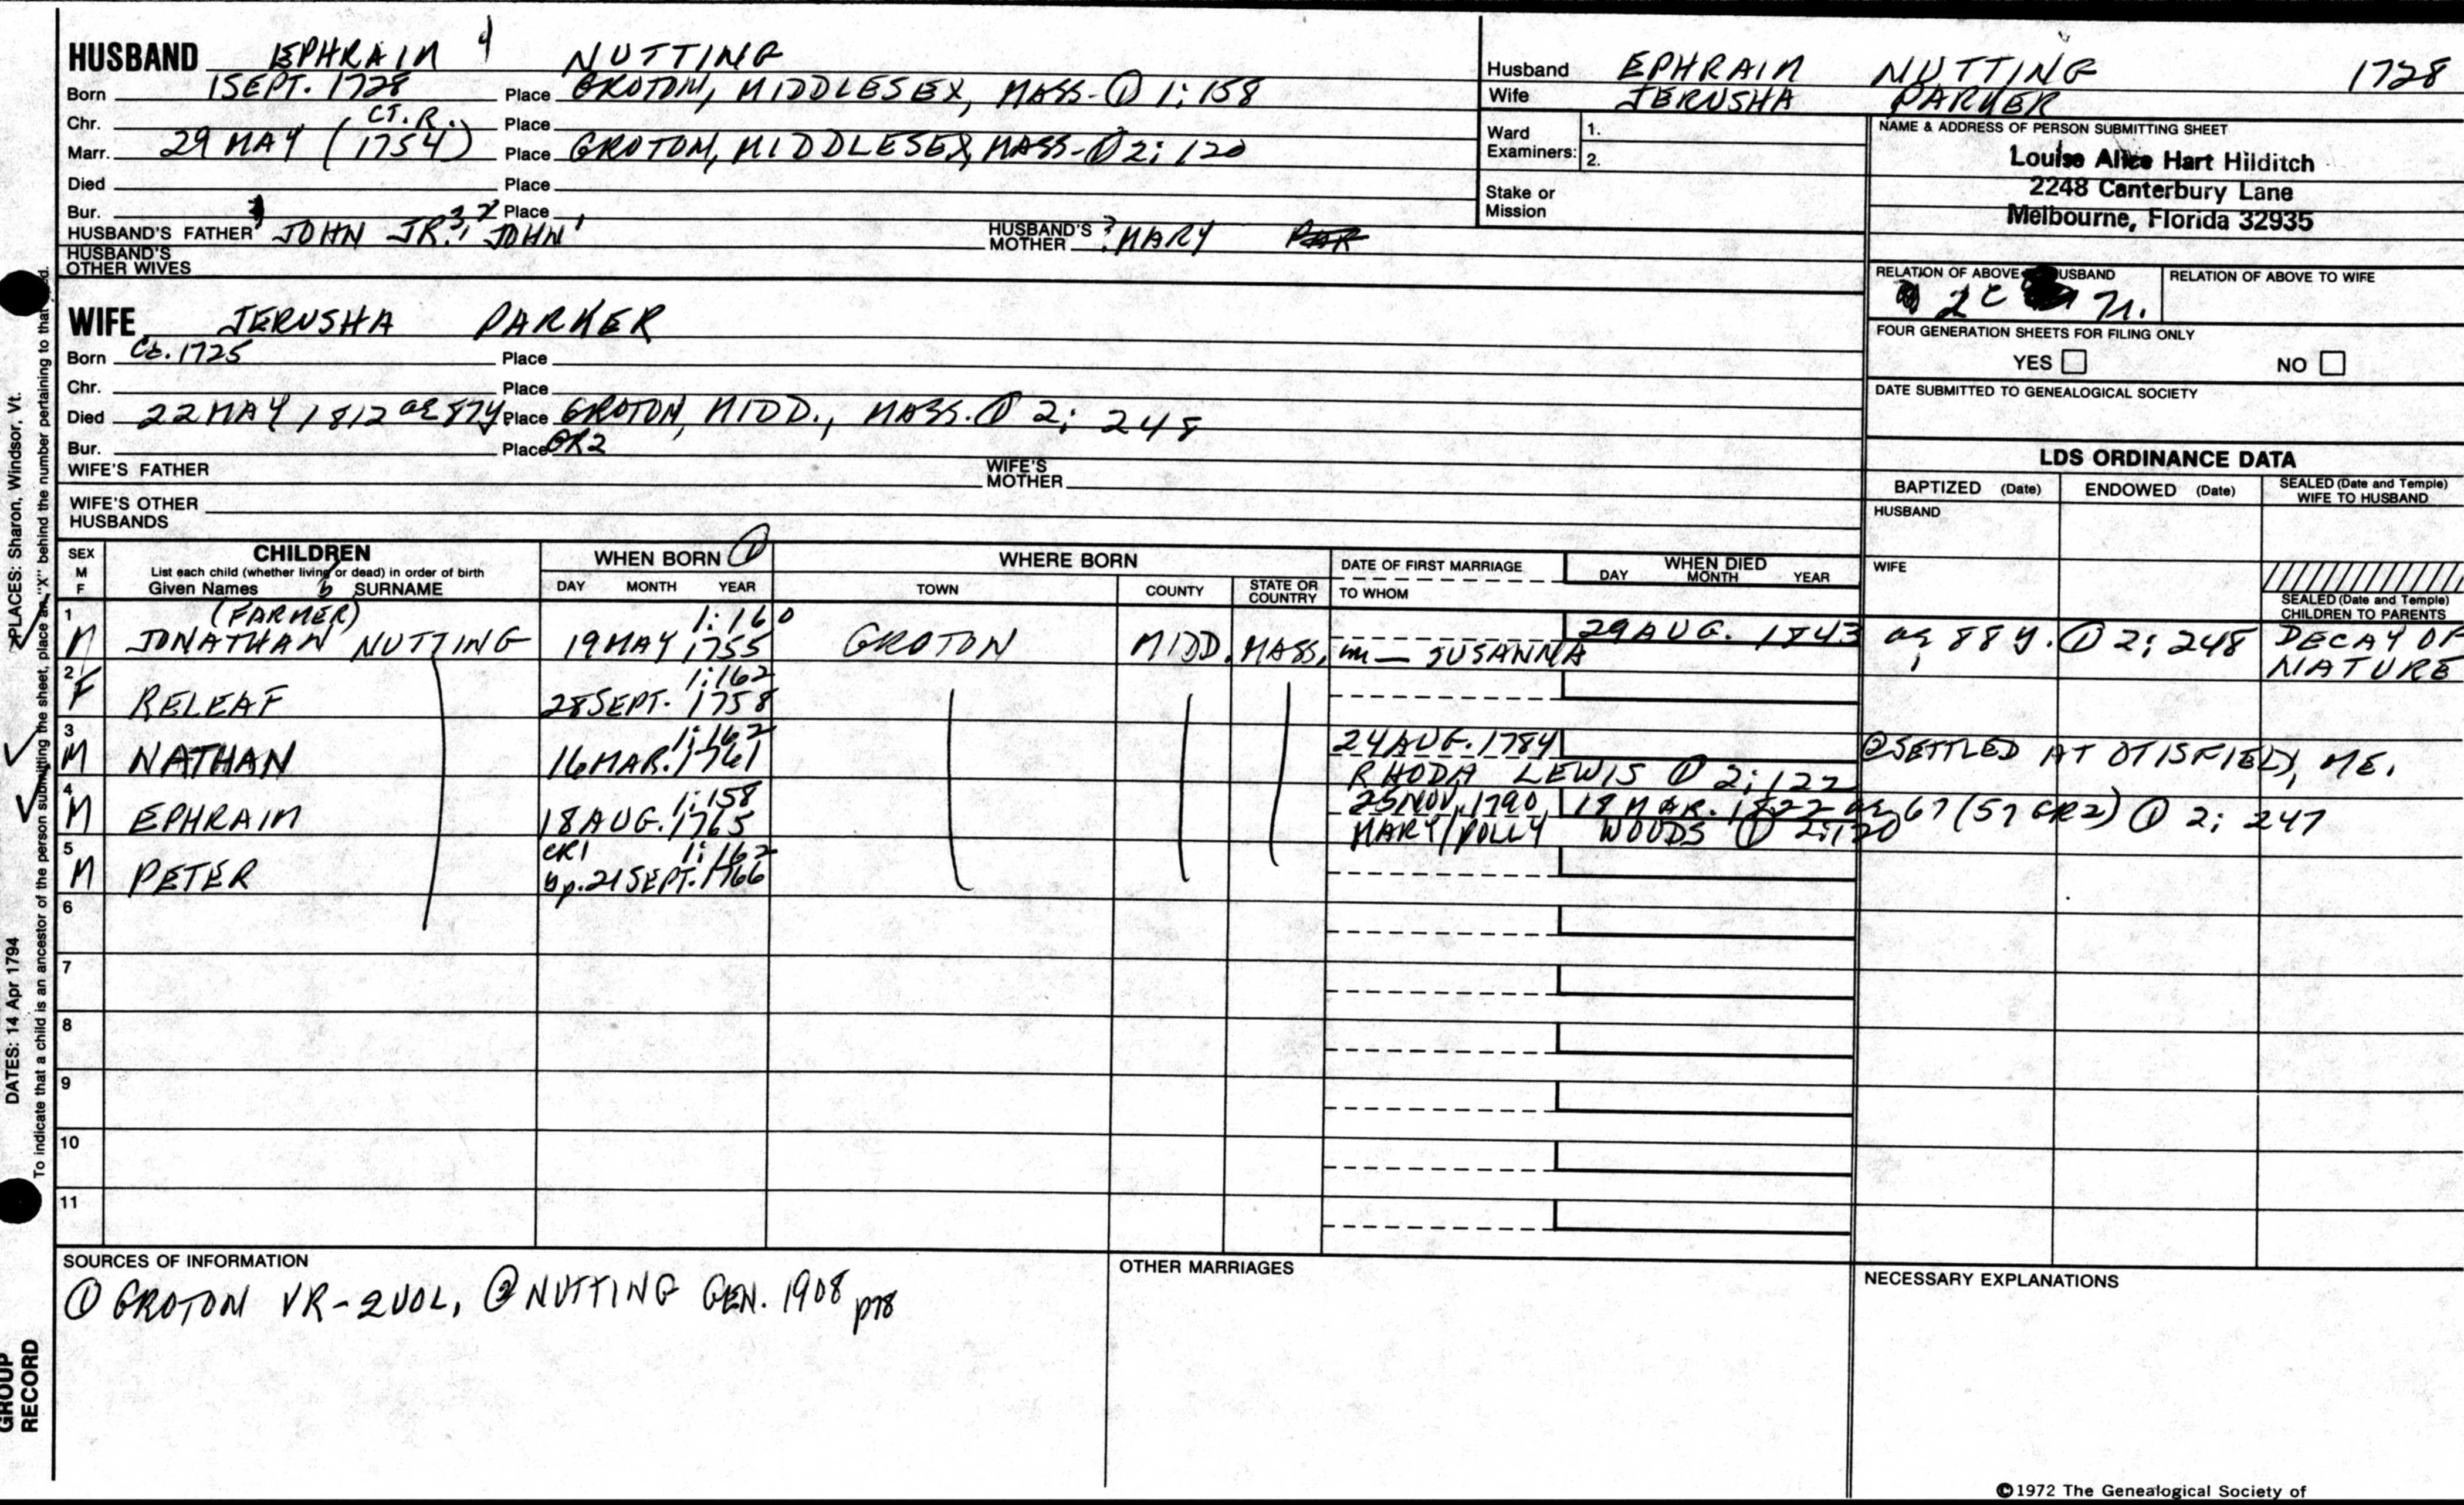 HUSBAND EPHRAIM 4 NUTTING
Born 1 SEPT. 1728 Place GROTON, MIDDLESEX, MASS. ① 1: 158
Chr. CT. R. Place
Marr. 29 MAY (1754) Place GROTON, MIDDLESEX, MASS- ① 2: 120
Died Place
Bur. Place
HUSBAND'S FATHER JOHN JR.3, JOHN HUSBAND'S MOTHER ? MARY
HUSBAND'S OTHER WIVES
WIFE JERUSHA PARKER
Born Ca. 1725 Place
Chr. Place
Died 22 MAY 1812 ae 87y Place GROTON, MIDD., MASS. ① 2: 248
Bur. Place GR2
WIFE'S FATHER WIFE'S MOTHER
WIFE'S OTHER HUSBANDS
Husband EPHRAIM NUTTING 1728
Wife JERUSHA PARKER
Ward Examiners: 1.
2.
Stake or Mission
NAME & ADDRESS OF PERSON SUBMITTING SHEET
Louise Alice Hart Hilditch
2248 Canterbury Lane
Melbourne, Florida 32935
RELATION OF ABOVE USBAND RELATION OF ABOVE TO WIFE
2C 7r.
FOUR GENERATION SHEETS FOR FILING ONLY
YES NO
DATE SUBMITTED TO GENEALOGICAL SOCIETY
LDS ORDINANCE DATA
BAPTIZED (Date) ENDOWED (Date) SEALED (Date and Temple) WIFE TO HUSBAND
HUSBAND
WIFE
SEALED (Date and Temple) CHILDREN TO PARENTS
SEX M F CHILDREN WHEN BORN ① WHERE BORN DATE OF FIRST MARRIAGE WHEN DIED
List each child (whether living or dead) in order of birth DAY MONTH YEAR TOWN COUNTY STATE OR COUNTRY TO WHOM DAY MONTH YEAR
Given Names SURNAME
1 (FARMER) 1: 160 29 AUG. 1843 ae 88 y. ① 2: 248 DECAY OF NATURE
M JONATHAN NUTTING 19 MAY 1755 GROTON MIDD. MASS. m — SUSANNA
2 1: 162
F RELEAF 28 SEPT. 1758
3 1: 162 24 AUG. 1784 ② SETTLED AT OTISFIELD, ME.
M NATHAN 16 MAR. 1761 RHODA LEWIS ① 2: 122
4 1: 158 25 NOV. 1790 18 MAR. 1822 ae 67 (57 GR2) ① 2: 247
M EPHRAIM 18 AUG. 1765 MARY/POLLY WOODS ① 2: 120
5 CR1 1: 162
M PETER bp. 21 SEPT. 1766
6
7
8
9
10
11
SOURCES OF INFORMATION
① GROTON VR - 2 VOL, ② NUTTING GEN. 1908 p78
OTHER MARRIAGES
NECESSARY EXPLANATIONS
©1972 The Genealogical Society of
PLACES: Sharon, Windsor, Vt.
DATES: 14 Apr 1794
To indicate that a child is an ancestor of the person submitting the sheet, place an "X" behind the number pertaining to that
GROUP
RECORD